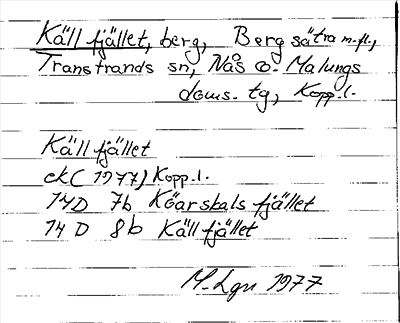 Källfjället, berg, Bergsätra m.fl.,
Transtrands sn, Nås o. Malungs
doms. tg, Kopp. l.
Källfjället
ek (1977) Kopp. l.
14D 7b Köarskalsfjället
14D 8b Källfjället
M-Lgn 1977